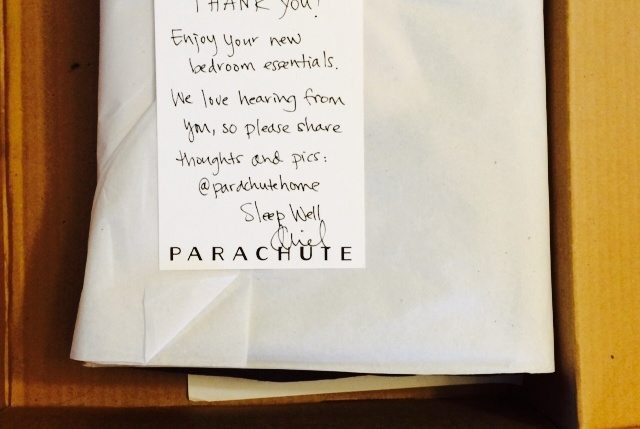 THANK YOU!
Enjoy your new
bedroom essentials.
We love hearing from
you, so please share
thoughts and pics:
@parachutehome
Sleep Well,
Ariel
PARACHUTE